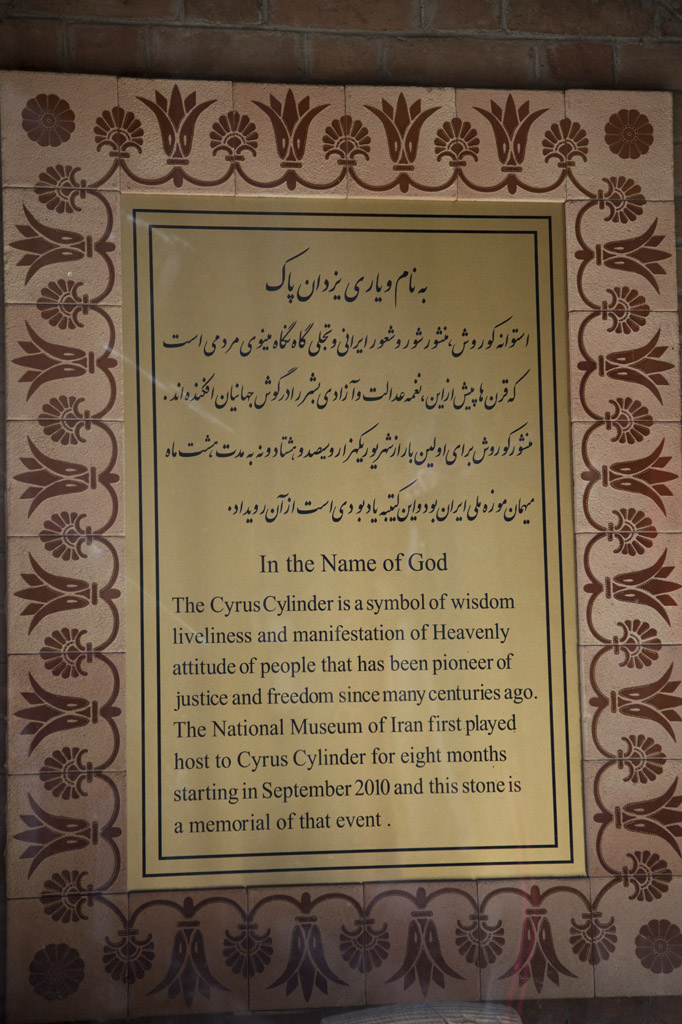 به نام و یاری یزدان پاک
استوانه کوروش، منشور شور و شعور ایرانی و تجلی گاه نگاه مینوی مردمی است
که قرن ها پیش از این، نغمه عدالت و آزادی بشر را در گوش جهانیان افکنده اند .
منشور کوروش برای اولین بار از شهریور یکهزار و سیصد و هشتاد و نه به مدت هشت ماه
میهمان موزه ملی ایران بود و این کتیبه یادبودی است از آن رویداد.
In the Name of God
The Cyrus Cylinder is a symbol of wisdom
liveliness and manifestation of Heavenly
attitude of people that has been pioneer of
justice and freedom since many centuries ago.
The National Museum of Iran first played
host to Cyrus Cylinder for eight months
starting in September 2010 and this stone is
a memorial of that event .